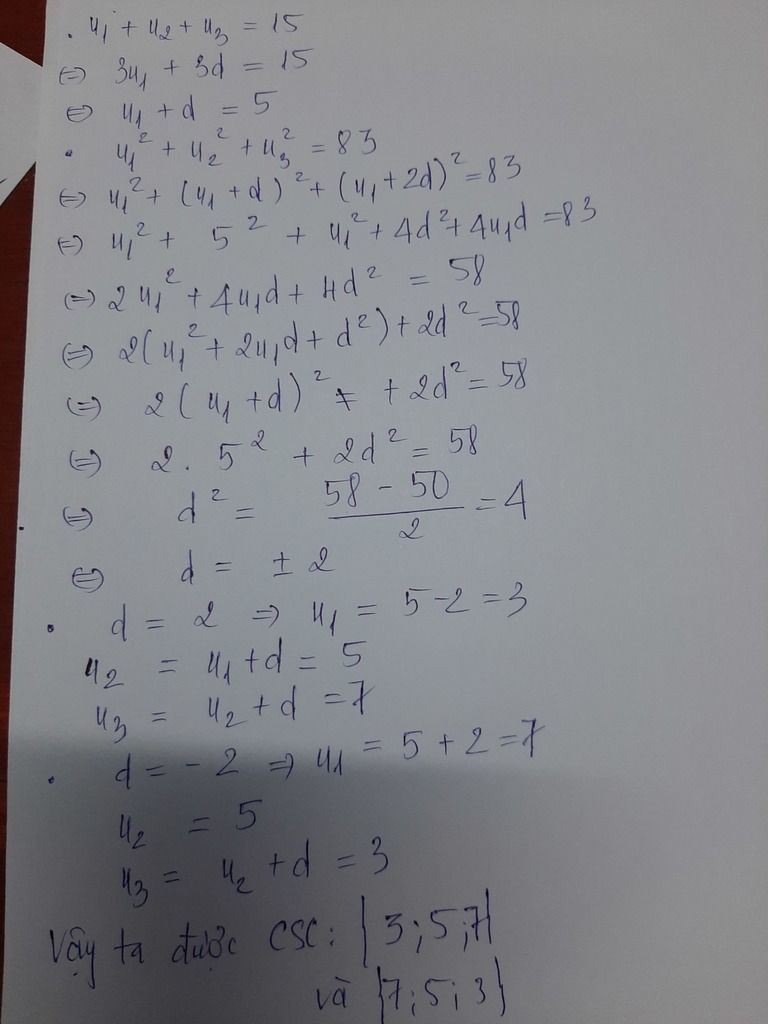 . u₁ + u₂ + u₃ = 15
⇔ 3u₁ + 3d = 15
⇔ u₁ + d = 5
. u₁² + u₂² + u₃² = 83
⇔ u₁² + (u₁ + d)² + (u₁ + 2d)² = 83
⇔ u₁² + 5² + u₁² + 4d² + 4u₁d = 83
⇔ 2u₁² + 4u₁d + 4d² = 58
⇔ 2(u₁² + 2u₁d + d²) + 2d² = 58
⇔ 2(u₁ + d)² + 2d² = 58
⇔ 2. 5² + 2d² = 58
⇔ d² = (58 - 50)/2 = 4
⇔ d = ± 2
. d = 2 ⇒ u₁ = 5 - 2 = 3
u₂ = u₁ + d = 5
u₃ = u₂ + d = 7
. d = - 2 ⇒ u₁ = 5 + 2 = 7
u₂ = 5
u₃ = u₂ + d = 3
Vậy ta được CSC: {3; 5; 7}
và {7; 5; 3}